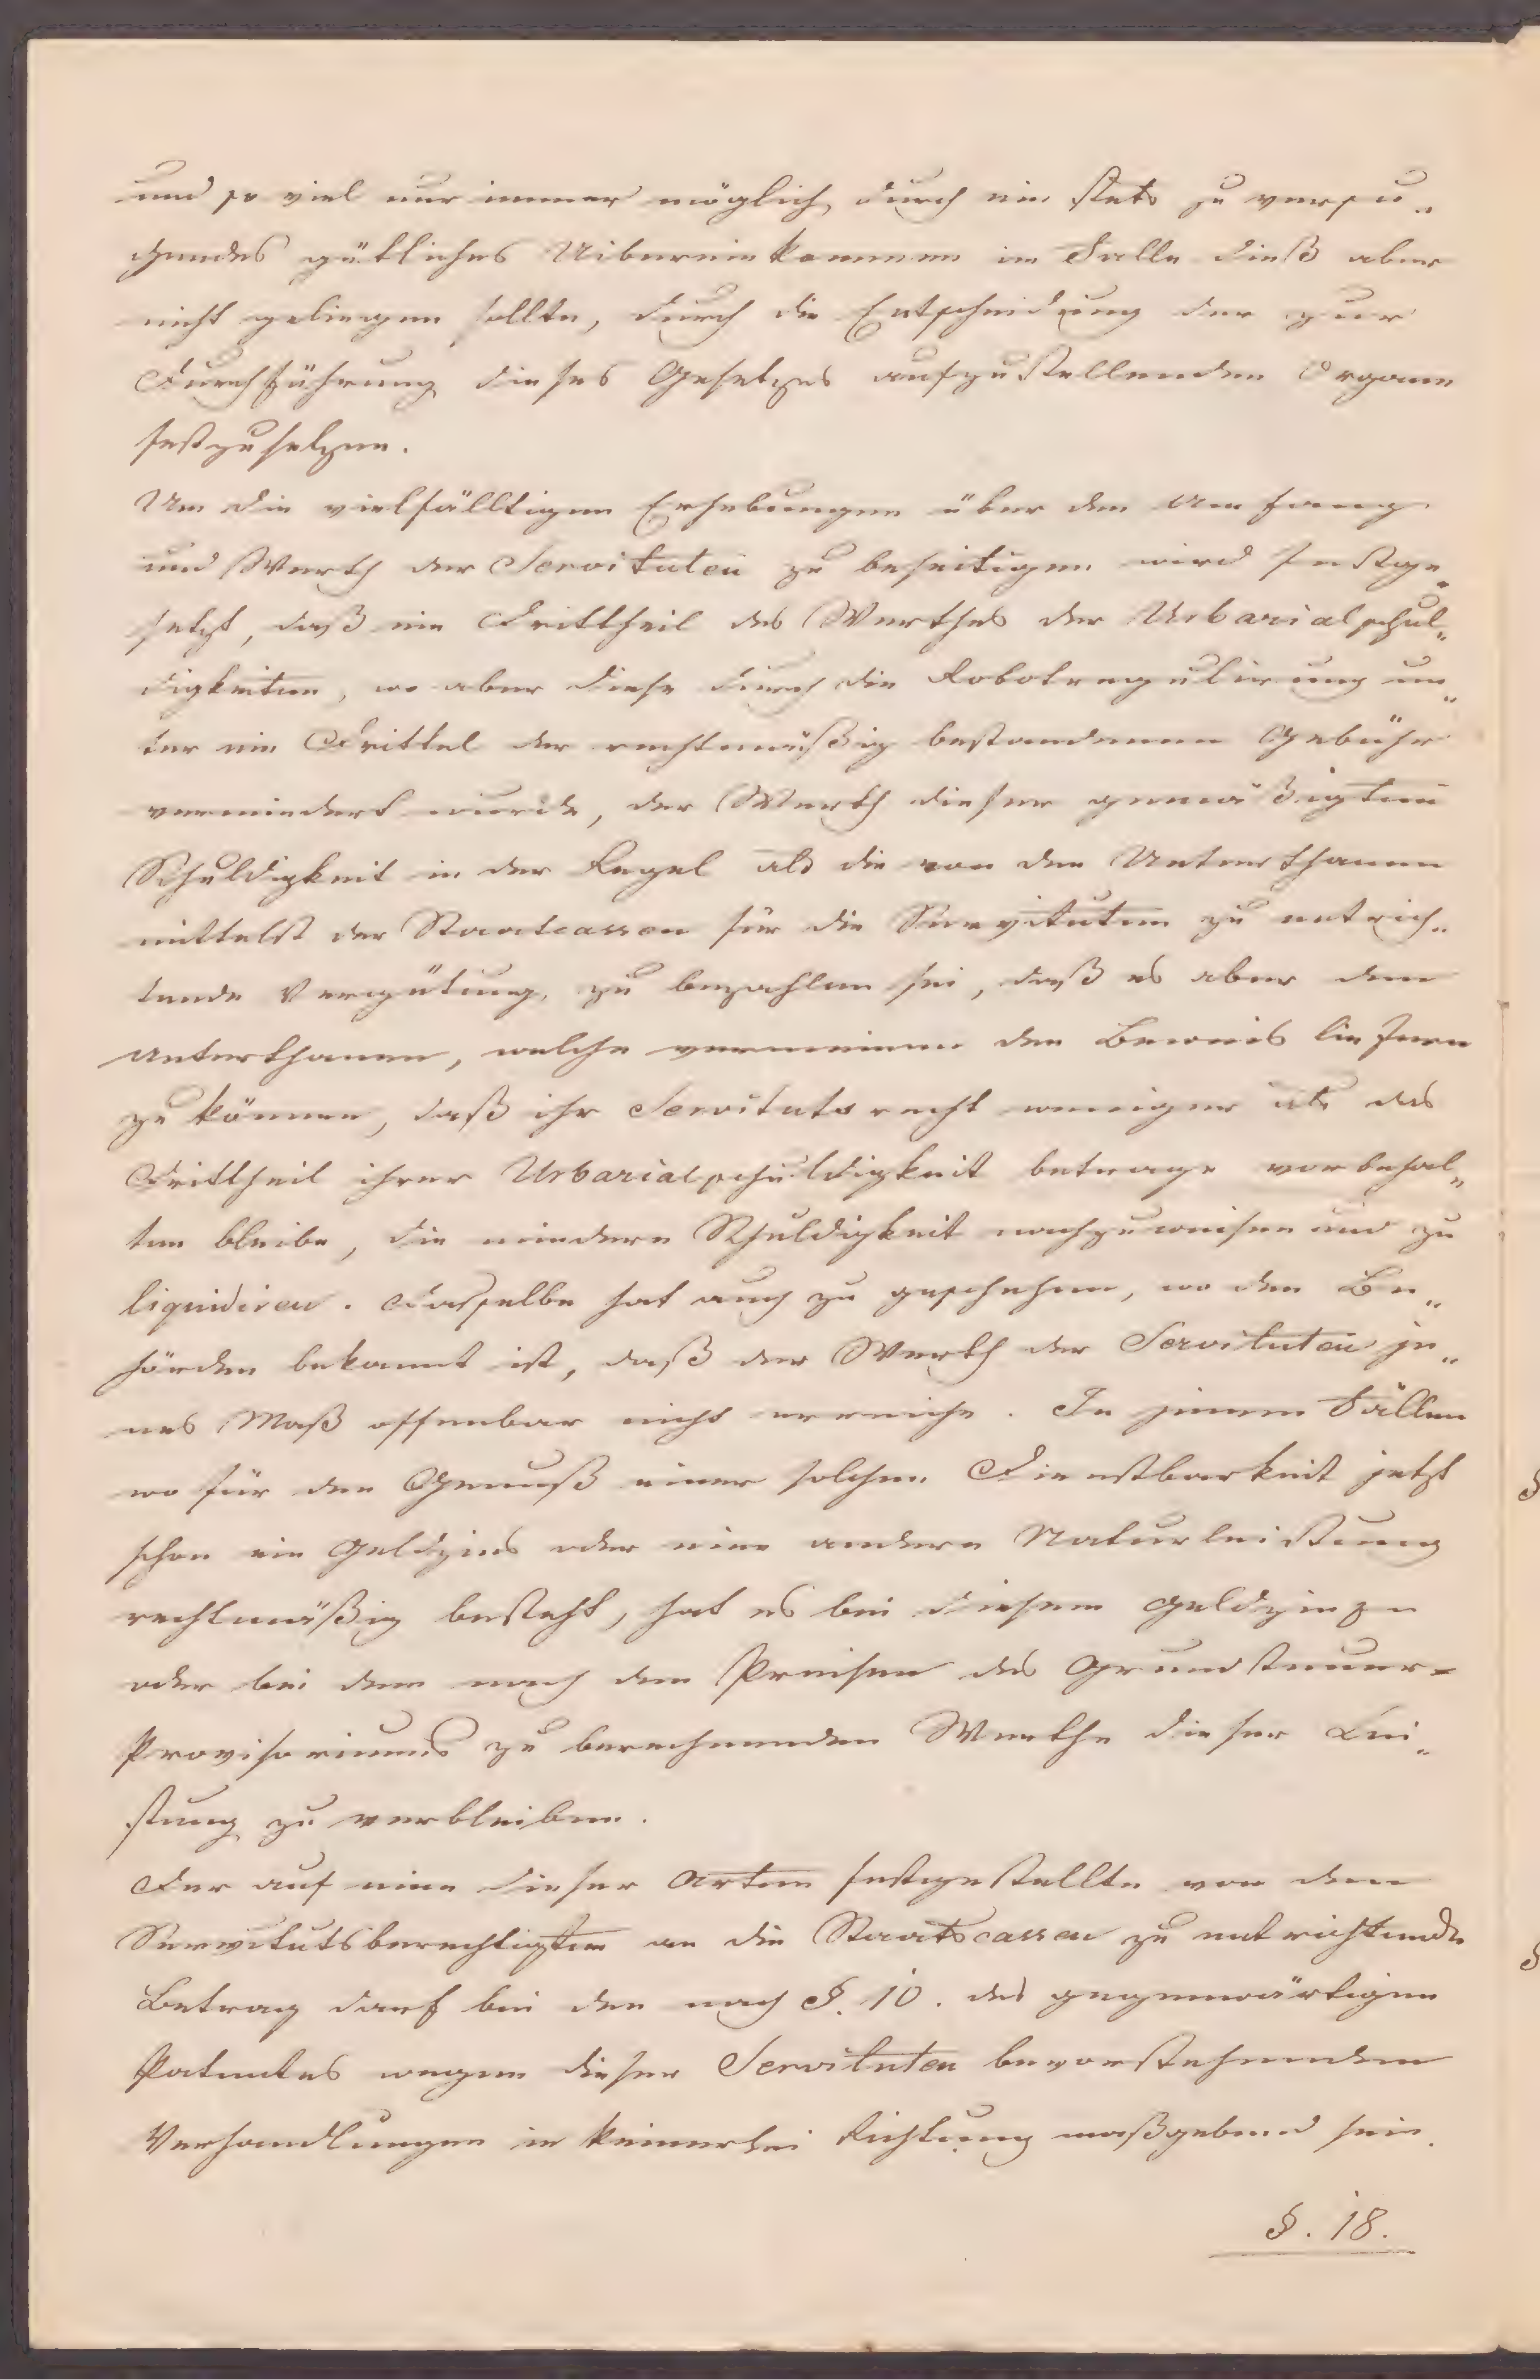 und so viel nur immer möglich durch ein stets zu versu„
chendes gütliches Uibereinkommen im Falle dieß aber
nicht gelingen sollte, durch die Entscheidung der zur
Durchführung dieses Gesetzes aufzustellenden Organe
festzusetzen.
Um die vielfälltigen Erhebungen über den Umfang
und Werth der Servituten zu beseitigen wird festge„
setzt, daß ein Drittheil des Werthes der Urbarialschul„
digkeiten, wo aber diese durch die Robotregulirung un„
ter ein Drittel der rechtmäßig bestandenen Gebühr
vermindert wurde, der Werth dieser gemäßigten
Schuldigkeit in der Regel als die von den Unterthanen
mittelst der Staatcassen für die Servituten zu entrich„
tende Vergütung, zu bezahlen sei, daß es aber den
Unterthanen, welche vermeinen den Beweis liefern
zu können, daß ihr Servitutsrecht weniger als das
Drittheil ihrer Urbarialschuldigkeit betrage vorbehal„
ten bleibe, die mindere Schuldigkeit nachzuweisen und zu
liquidiren. Dasselbe hat auch zu geschehen, wo den Be„
hörden bekannt ist, daß der Werth der Servituten je„
nes Maß offenbar nicht erreiche. In jenen Fällen
wo für den Genuß einer solchen Dienstbarkeit jetzt
schon ein Geldzins oder eine andere Naturleistung
rechtmäßig besteht, hat es bei diesem Geldzinse
oder bei dem nach den Preisen des Grundsteuer-
Provisoriums zu berechnenden Werthe dieser Lei„
stung zu verbleiben.
Der auf eine dieser Arten festgestellte von den
Servitutsberechtigten an die Staatscassen zu entrichtende
Betrag darf bei den nach §. 10. des gegenwärtigen
Patentes wegen dieser Servituten bevorstehenden
Verhandlungen in keinerlei Richtung maßgebend sein.
§. 18.